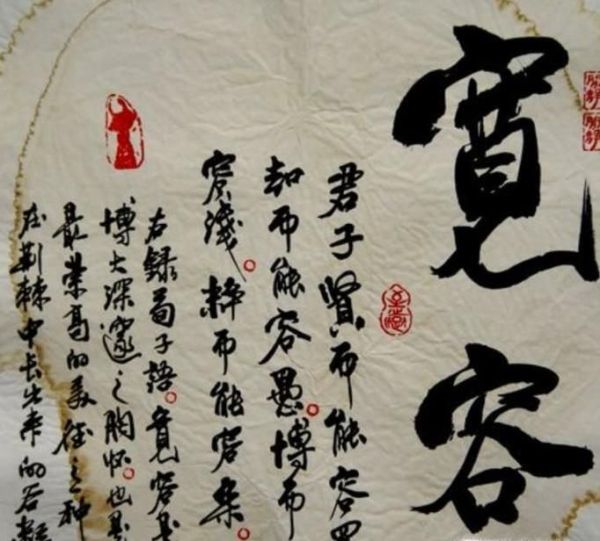 寬容
君子賢而能容
知而能容愚博而
容淺粹而能容杂
右錄荀子語寬容是
博大深邃之胸怀也是
最崇高的美德之一种
在荆棘中长出来的谷